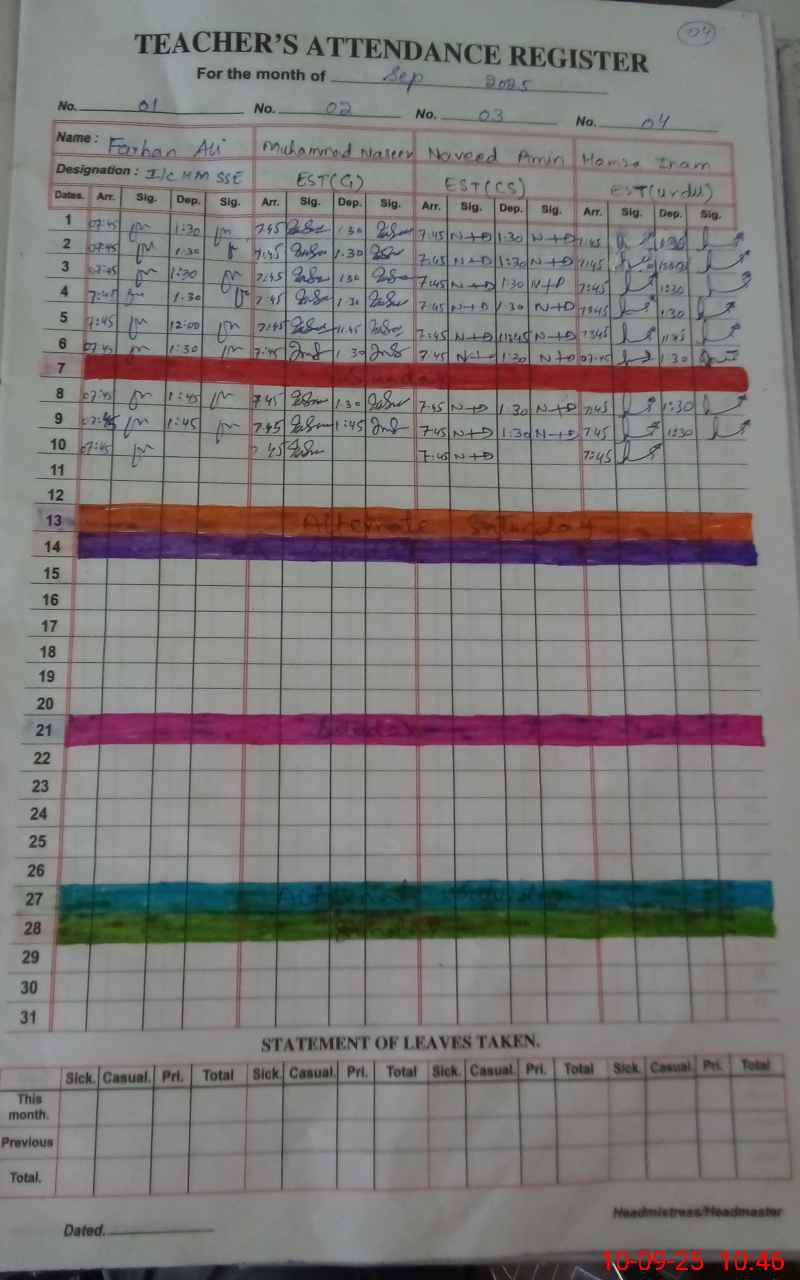 04
TEACHER'S ATTENDANCE REGISTER
For the month of Sep 2025
No. 01 No. 02 No. 03 No. 04
Name : Farhan Ali Muhammad Naseer Naveed Amin Hamza Inam
Designation : I/C HM SSE EST(G) EST(CS) EST(urdu)
Dates. Arr. Sig. Dep. Sig. Arr. Sig. Dep. Sig. Arr. Sig. Dep. Sig. Arr. Sig. Dep. Sig.
1 07:45 1:30 7:45 1:30 7:45 N+D 1:30 N+D 7:45 1:30
2 07:45 1:30 7:45 1:30 7:45 N+D 1:30 N+D 7:45
3 07:45 1:30 7:45 1:30 7:45 N+D 1:30 N+D 7:45 1:30
4 7:45 1:30 7:45 1:30 7:45 N+D 1:30 N+D 7:45 1:30
5 7:45 12:00 7:45 11:45 7:45 N+D 11:45 N+D 7:45 11:45
6 07:45 1:30 7:45 1:30 7:45 N+D 1:30 N+D 07:45 1:30
7 Sunday
8 07:45 1:45 7:45 1:30 7:45 N+D 1:30 N+D 7:45 1:30
9 07:45 1:45 7:45 1:45 7:45 N+D 1:30 N+D 7:45 1:30
10 07:45 7:45 7:45 N+D 7:45
11
12
13 Alternate Saturday
14 Sunday
15
16
17
18
19
20
21 Sunday
22
23
24
25
26
27 Alternate Saturday
28 Sunday
29
30
31
STATEMENT OF LEAVES TAKEN.
Sick. Casual. Pri. Total Sick. Casual. Pri. Total Sick. Casual. Pri. Total Sick. Casual. Pri. Total
This
month.
Previous
Total.
Headmistress/Headmaster
Dated.
10-09-25 10:46